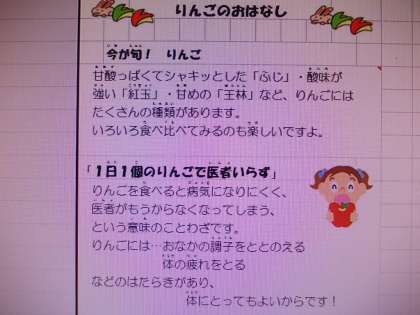 りんごのおはなし
今が旬! りんご
甘酸っぱくてシャキッとした「ふじ」・酸味が
強い「紅玉」・甘めの「王林」など、りんごには
たくさんの種類があります。
いろいろ食べ比べてみるのも楽しいですよ。
「1日1個のりんごで医者いらず」
りんごを食べると病気になりにくく、
医者がもうからなくなってしまう、
という意味のことわざです。
りんごには…おなかの調子をととのえる
体の疲れをとる
などのはたらきがあり、
体にとってもよいからです!